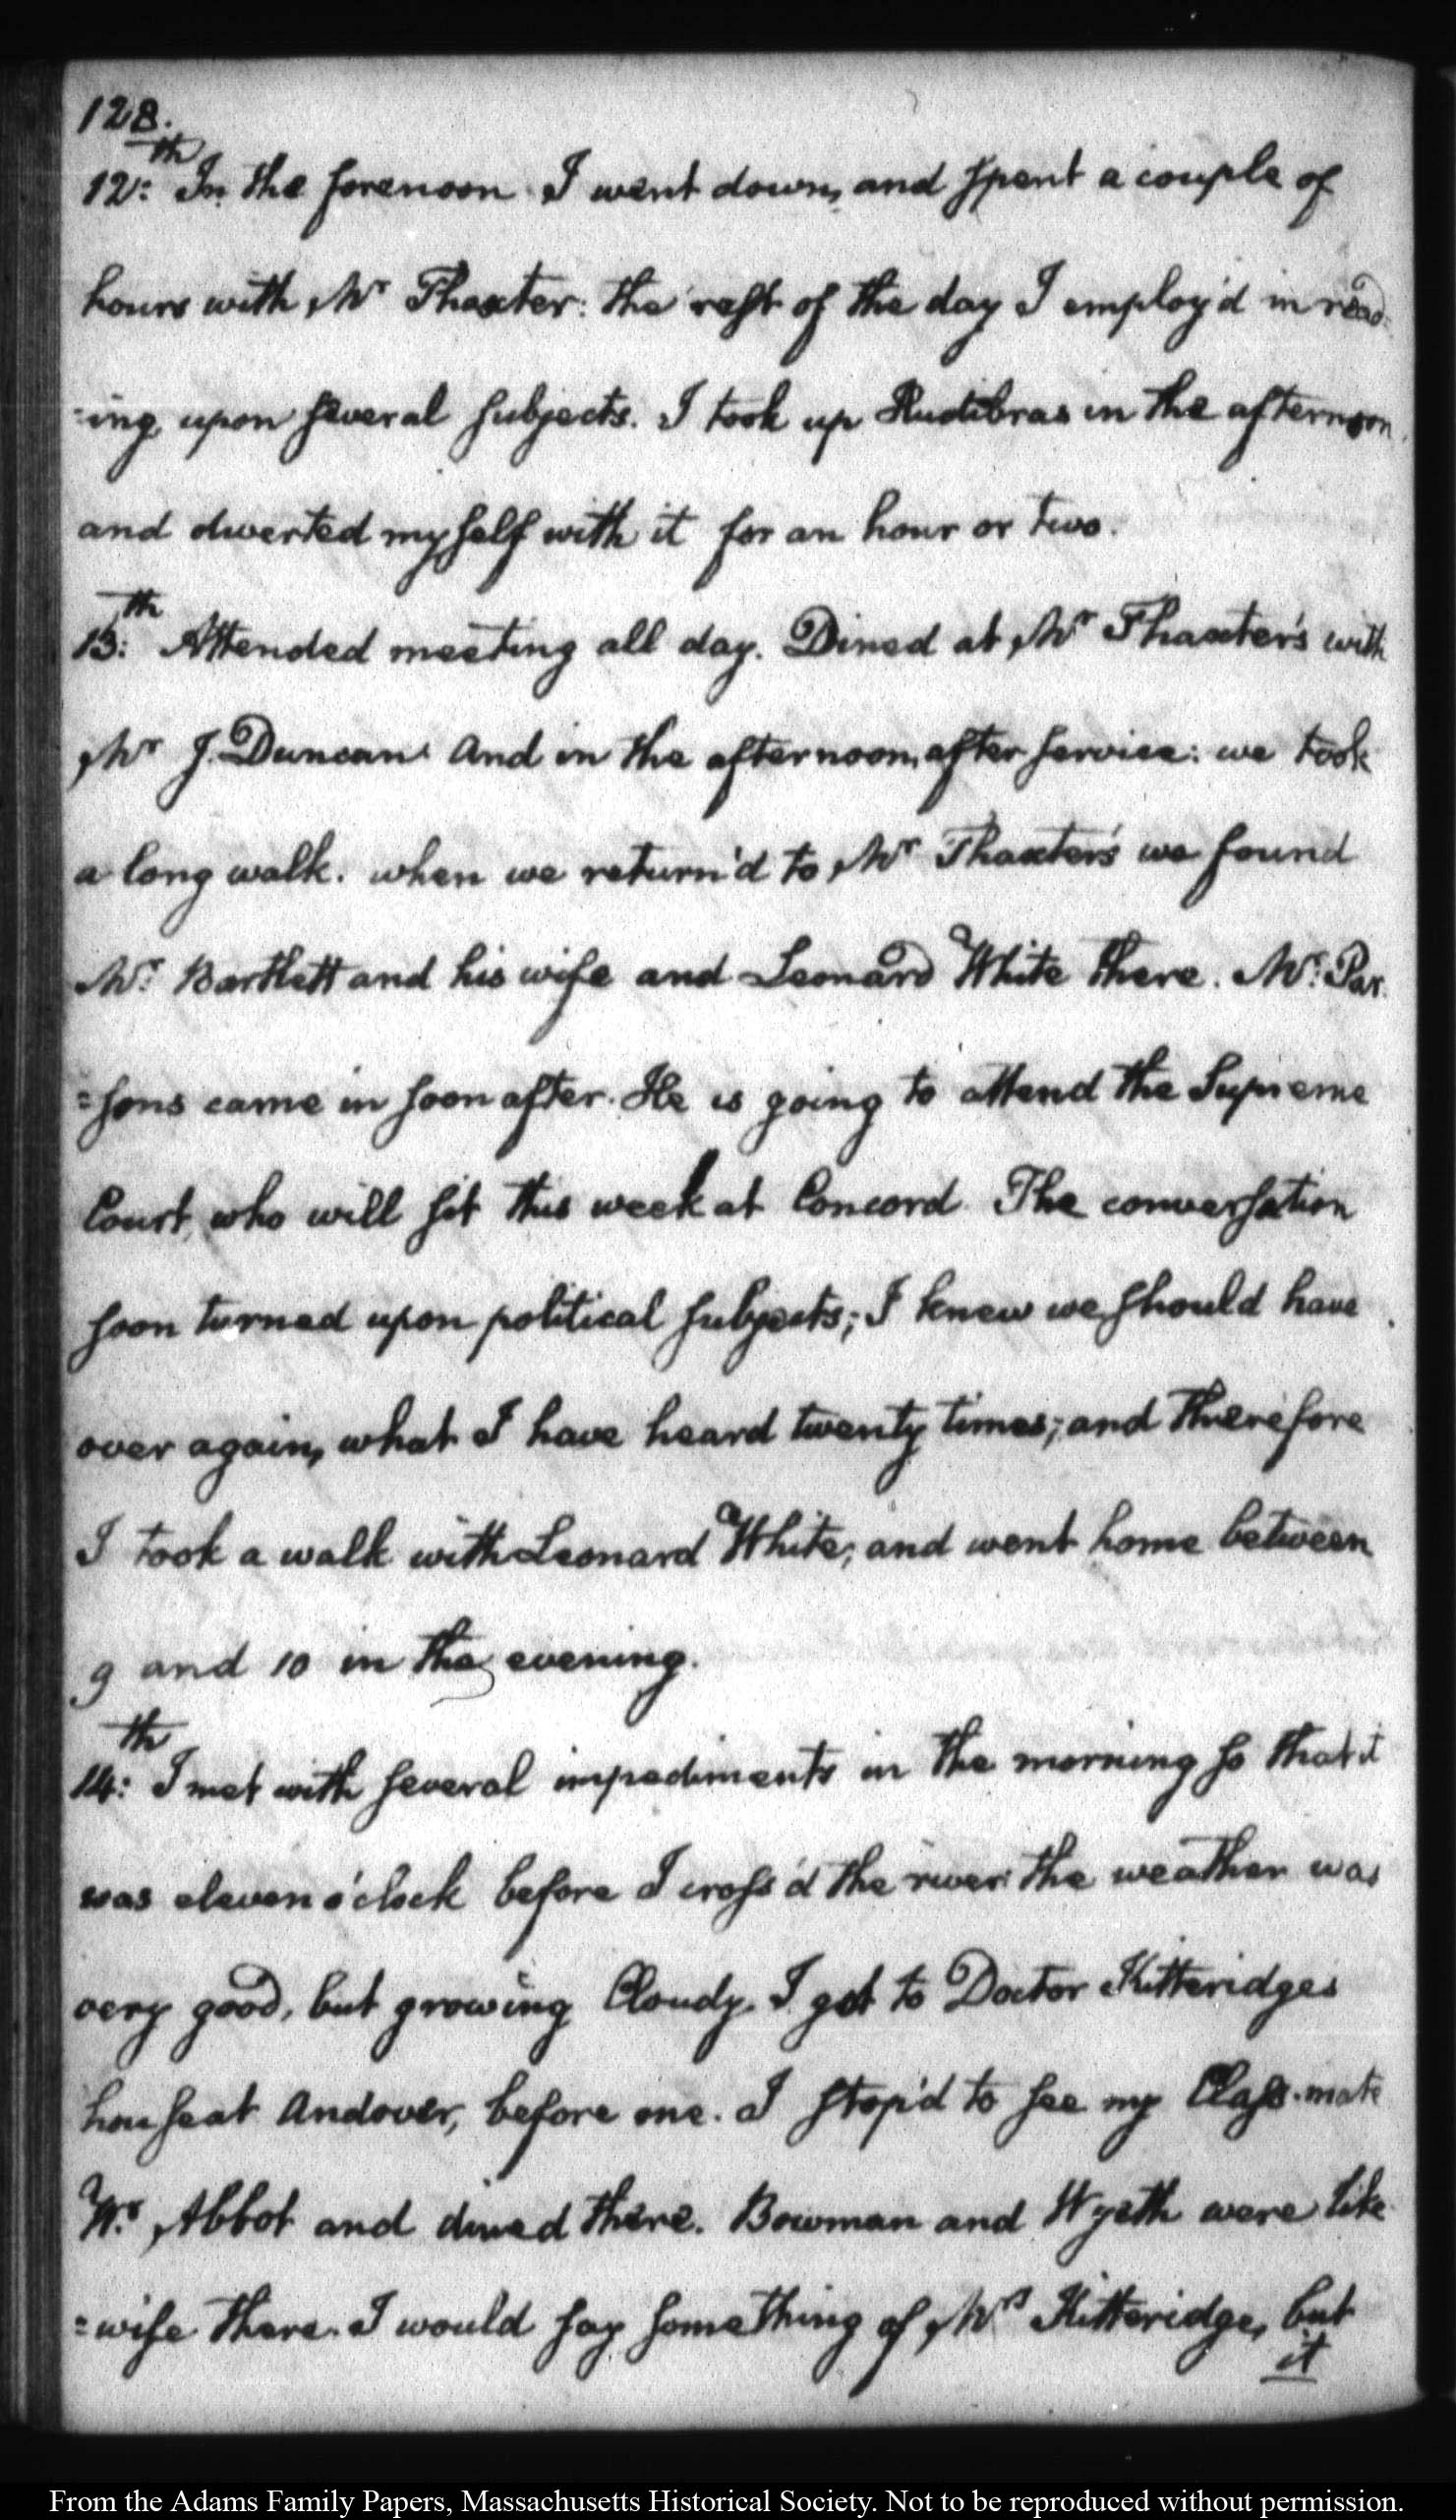 128.
12:th In the forenoon I went down, and spent a couple of
hours with Mr Thaxter: the rest of the day I employ'd in read-
-ing, upon several subjects. I took up Hudibras in the afternoon,
and diverted myself with it for an hour or two.
13:th Attended meeting all day. Dined at Mr Thaxter's with
Mr J. Duncan. And in the afternoon, after service: we took
a long walk. when we return'd to Mr Thaxter's we found
Mr. Bartlett and his wife and Leonard White there. Mr. Par-
=sons came in soon after. He is going to attend the Supreme
Court, who will sit this week at Concord. The conversation
soon turned upon political subjects; I knew we should have
over again, what I have heard twenty times; and therefore
I took a walk with Leonard White; and went home between
9 and 10 in the evening.
14:th I met with several impediments in the morning so that it
was eleven o'clock before I cross'd the river: the weather was
very good, but growing Cloudy. I got to Doctor Kitteridges
house at Andover, before one. I stop'd to see my Class-mate
W.m Abbot and dined there. Bowman and Wyeth were like
=wise there. I would say something of Mrs Kitteridge, but
it
From the Adams Family Papers, Massachusetts Historical Society. Not to be reproduced without permission.